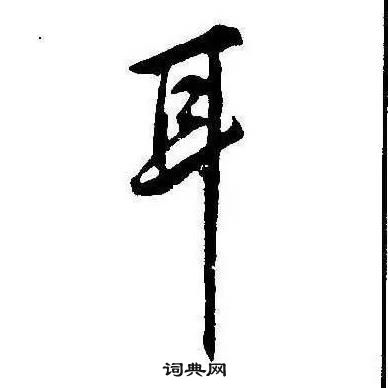 耳
词典网